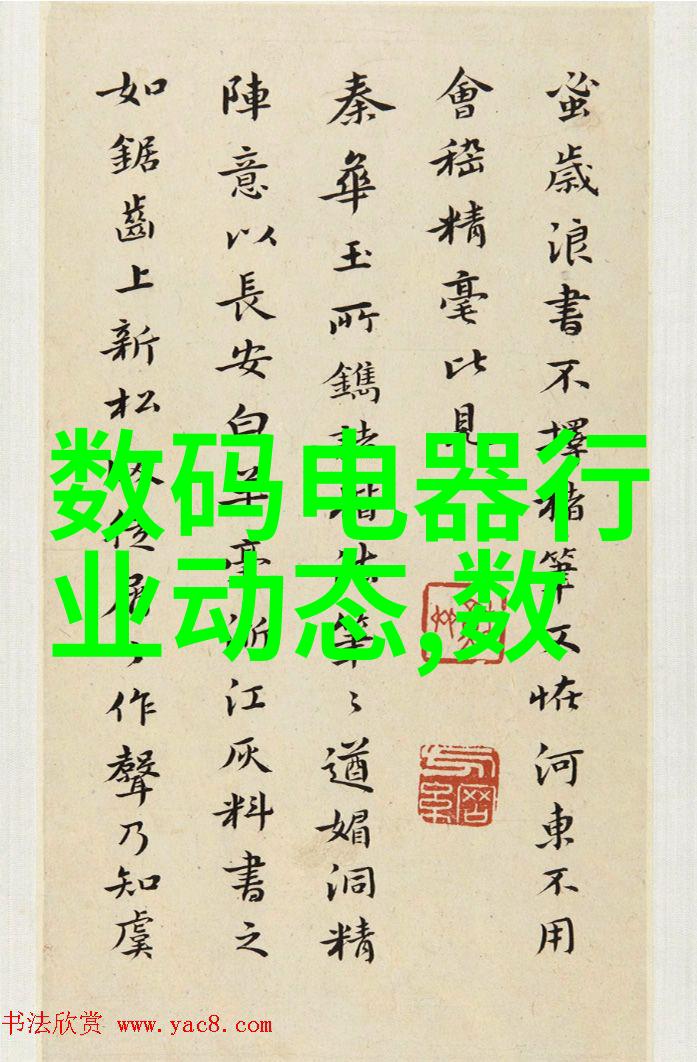 蚤歲浪書不擇楮筆又恠河東不用
會稽精毫比見
秦華玉所鐫諸楷法筆〻遒媚洞精
陣意以長安白羊毫浙江灰料書之
如鋸齒上新松作聲乃知虞
数码电器行
业动态,数
书法欣赏 www.yac8.com